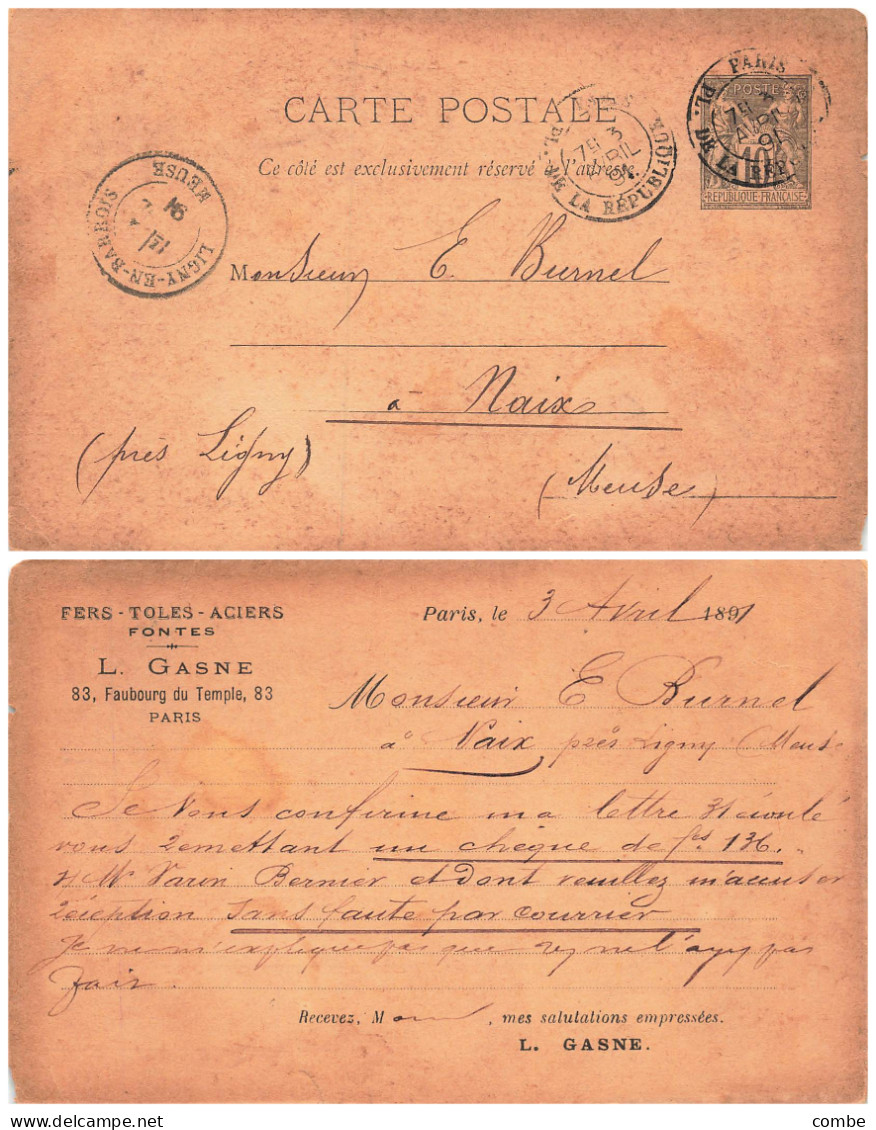 CARTE POSTALE
Ce côté est exclusivement réservé à l'adresse
PARIS
PL. DE LA RÉPUBLIQUE
7E 3
AVRIL
91
PARIS
PL. DE LA RÉPUBLIQUE
7E 3
AVRIL
91
POSTES
10
REPUBLIQUE FRANÇAISE
LIGNY-EN-BARROIS
MEUSE
91
Monsieur E. Burnel
à Naix
(près Ligny)
(Meuse)
FERS - TOLES - ACIERS
FONTES
L. GASNE
83, Faubourg du Temple, 83
PARIS
Paris, le 3 Avril 1891
Monsieur E Burnel
à Naix près Ligny (Meuse
Je vous confirme ma lettre 31 écoulé
vous remettant un chèque de fs 136.
s/ Mr Varin Bernier et dont veuillez m'accuser
réception sans faute par courrier
Je ne m'explique pas que ne l'ayez pas
fait.
Recevez, M , mes salutations empressées.
L. GASNE.
combe